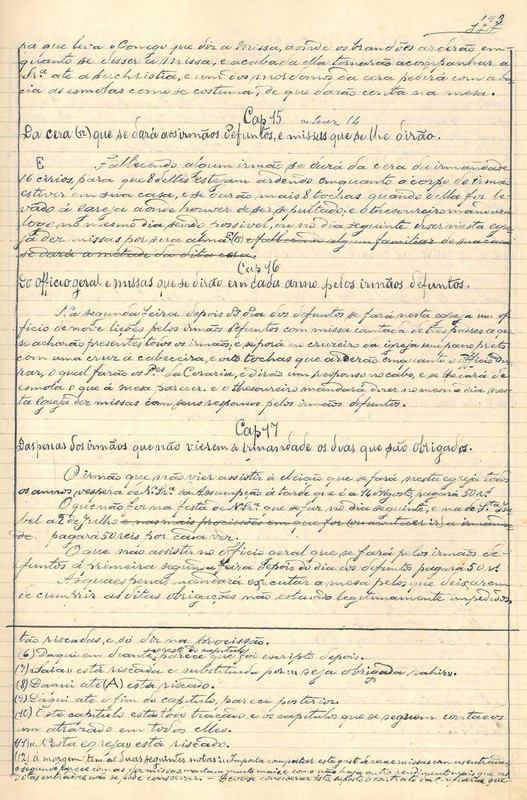 193
pa que leva o Comego que dir a Missa, aonde os brandões arderão em-
quanto se disser a missa, e acabada ella tornarão acompanhar a
Snrª até a sachristia, e um dos mordomos da cera pedirá com a ba-
cia as esmolas como se costuma, de que darão conta na mesa.
Cap 15
Da cera (12) que se dará aos irmãos defuntos, e missas que se lhe dirão.
E Fallecendo algum irmão se dará da cera da irmandade
16 cirios, para que 8 delles estejam ardendo enquanto o corpo do irmão
estiver em sua casa, e se darão mais 8 tochas quando ella for le-
vado á Igreja aonde houver de ser sepultado, e o thesoureiro mandará
logo no mesmo dia, sendo possivel, ou no dia seguinte dizer nesta egre-
ja dez missas por sua alma e fallecendo algum familiar de sua casa
se dará a metade da dita cera.
Cap 16
Do officio geral e missas que se dirão em cada anno pelos irmãos defuntos.
Na segunda feira depois do dia dos defuntos se fará nesta egreja um of-
ficio de nove lições pelos irmãos defuntos com missa cantada de tres padres a que
se acharão presentes todos os irmãos, e se porá no cruzeiro da igreja um pano preto
com uma cruz á cabeceira, e oito tochas que arderão enquanto o officio du-
rar, o qual farão os Pes da Coraria, e dirão um responso no cabo, e se lhe dará de
esmola o que á mesa parecer. e o thesoureiro mandará dizer no mesmo dia nes-
ta Igreja dez missas com seus responsos pelos irmãos defuntos.
Cap 17
Das penas dos irmãos que não vierem á irmandade os dias que são obrigados.
O irmão que não vier assistir á eleição que se fará nesta egreja todos
os annos, vespera de N. Snrª da Assumpção á tarde que é a 14 d'Agosto, pagará 50 rs.
O que não for na festa de N. Snrª que se faz no dia seguinte, e na de Sta Isa-
bel a 2 de Julho e nas mais procissões em que for
pagará 50 reis por cada vez.
O que não assistir no officio geral que se fará pelos irmãos de-
funtos á primeira segunda feira depois do dia dos defuntos pagará 50 rs.
As quaes penas mandará executar a mesa pelos que deixarem
de cumprir as ditas obrigações não estando legitimamente impedidos.
tão riscadas, e só diz na procissão.
(6) Daqui em diante o resto do capitulo parece que foi escripto depois.
(7) "Saia" está riscada e substituida por: "seja obrigada sahir".
(8) Daqui até (A) está riscado.
(9) Daqui até o fim do capitulo, parece posterior.
(10) Este capitulo está todo traçado, e os capitulos que se seguem contados
um atrazado em todos elles.
(11) "Nesta egreja" está riscado.
(12) á margem tem as duas seguintes notas: